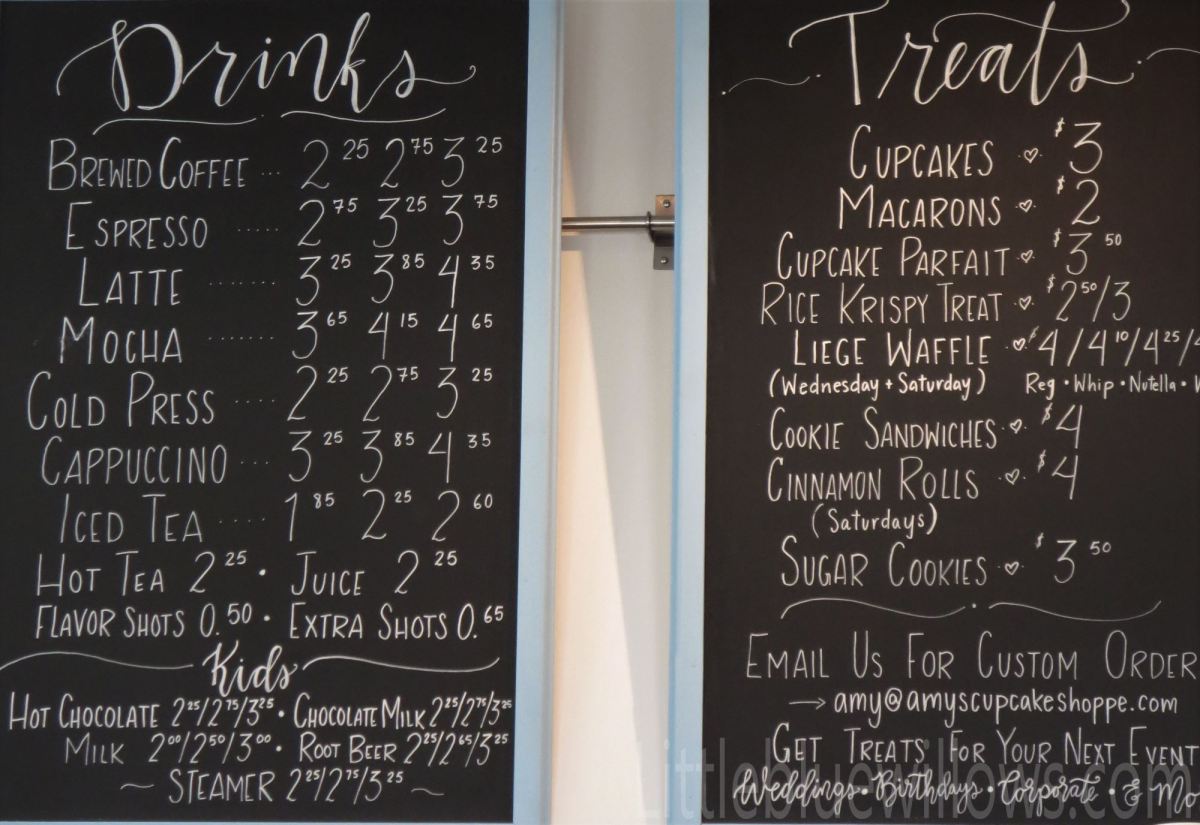 Drinks
BREWED COFFEE ... 2 25 2 75 3 25
ESPRESSO ..... 2 75 3 25 3 75
LATTE ....... 3 25 3 85 4 35
MOCHA ....... 3 65 4 15 4 65
COLD PRESS ..... 2 25 2 75 3 25
CAPPUCCINO ... 3 25 3 85 4 35
ICED TEA .... 1 85 2 25 2 60
HOT TEA 2 25 • JUICE 2 25
FLAVOR SHOTS 0.50 • EXTRA SHOTS 0.65
Kids
HOT CHOCOLATE 2 25/2 75/3 25 • CHOCOLATE MILK 2 25/2 75/3 25
MILK 2 00/2 50/3 00 • ROOT BEER 2 25/2 65/3 25
~ STEAMER 2 25/2 75/3 25 ~
Treats
CUPCAKES ·♡· $3
MACARONS ·♡· $2
CUPCAKE PARFAIT ·♡· $3 50
RICE KRISPY TREAT ·♡· $2 50/3
LIEGE WAFFLE ·♡· $4/4 10/4 25/
(Wednesday + Saturday) Reg • Whip • Nutella •
COOKIE SANDWICHES ·♡· $4
CINNAMON ROLLS ·♡· $4
(Saturdays)
SUGAR COOKIES ·♡· $3 50
EMAIL US FOR CUSTOM ORDER
→ amy@amyscupcakeshoppe.com
GET TREATS FOR YOUR NEXT EVENT
Weddings • Birthdays • Corporate • & Mo
Littlebluewillows.com